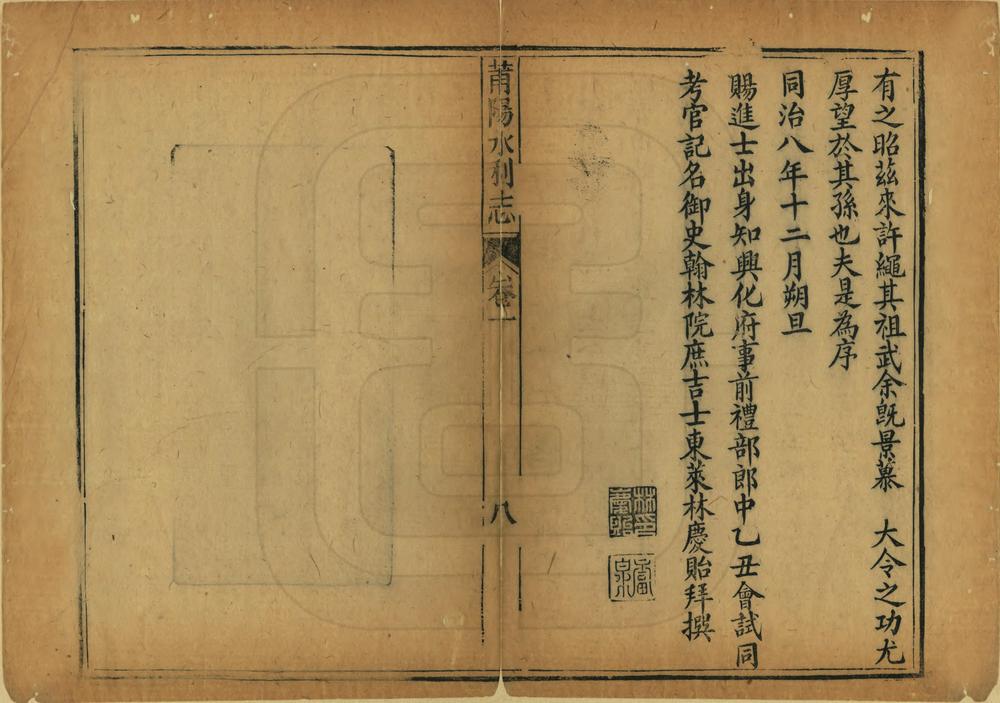 有之昭茲來許繩其祖武余旣景慕　大令之功尤
厚望於其孫也夫是為序
同治八年十二月朔旦
賜進士出身知興化府事前禮部郎中乙丑會試同
考官記名御史翰林院庶吉士東萊林慶貽拜撰
林印慶貽
莆陽水利志
卷一
八